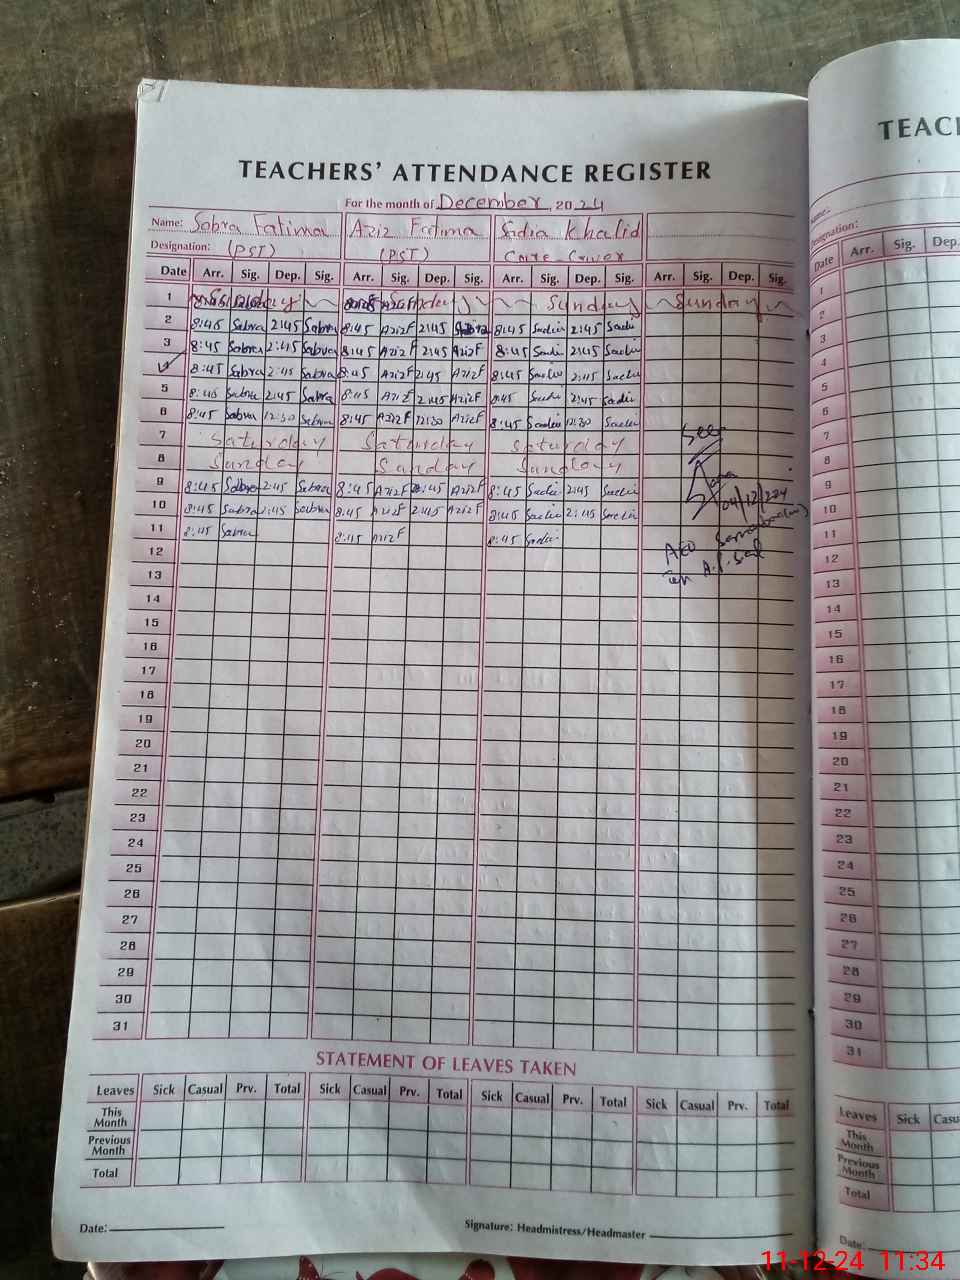 TEACHERS' ATTENDANCE REGISTER
For the month of December, 2024
Name: Sabra Fatima Aziz Fatima Sadia Khalid
Designation: (PST) (PST) Care Giver
Date Arr. Sig. Dep. Sig. Arr. Sig. Dep. Sig. Arr. Sig. Dep. Sig. Arr. Sig. Dep. Sig.
1 Sunday Sunday
2 8:45 Sabra 2:45 Sabra 8:45 Aziz F 2:45 8:45 Sadia 2:45 Sadi
3 8:45 Sabra 2:45 Sabra 8:45 Aziz F 2:45 Aziz F 8:45 Sadi 2:45 Sadi
8:45 Sabra 2:45 Sabra 8:45 Aziz F 2:45 Aziz F 8:45 Sadi 2:45 Sadi
5 8:45 Sabra 2:45 Sabra 8:45 Aziz F 2:45 Aziz F 8:45 Sadi 2:45 Sadi
6 8:45 Sabra 12:30 Sabra 8:45 Aziz F 12:30 Aziz F 8:45 Sadi 12:30 Sadi
7 Saturday Saturday Saturday
8 Sunday Sunday Sunday
9 8:45 Sabra 2:45 Sabra 8:45 Aziz F 2:45 Aziz F 8:45 Sadi 2:45 Sadi
10 8:45 Sabra 2:45 Sabra 8:45 Aziz F 2:45 Aziz F 8:45 Sadi 2:45 Sadi
11 8:45 Sabra 8:45 Aziz F 8:45 Sadi
12
13
14
15
16
17
18
19
20
21
22
23
24
25
26
27
28
29
30
31
Seen
04/12/224
STATEMENT OF LEAVES TAKEN
Leaves Sick Casual Prv. Total Sick Casual Prv. Total Sick Casual Prv. Total Sick Casual Prv. Total
This Month
Previous Month
Total
Date:
Signature: Headmistress/Headmaster
TEAC
Name:
Designation:
Date Arr. Sig. Dep.
1
2
3
4
5
6
7
8
9
10
11
12
13
14
15
16
17
18
19
20
21
22
23
24
25
26
27
28
29
30
31
Leaves Sick Casu
This Month
Previous Month
Total
Date:
11-12-24 11:34